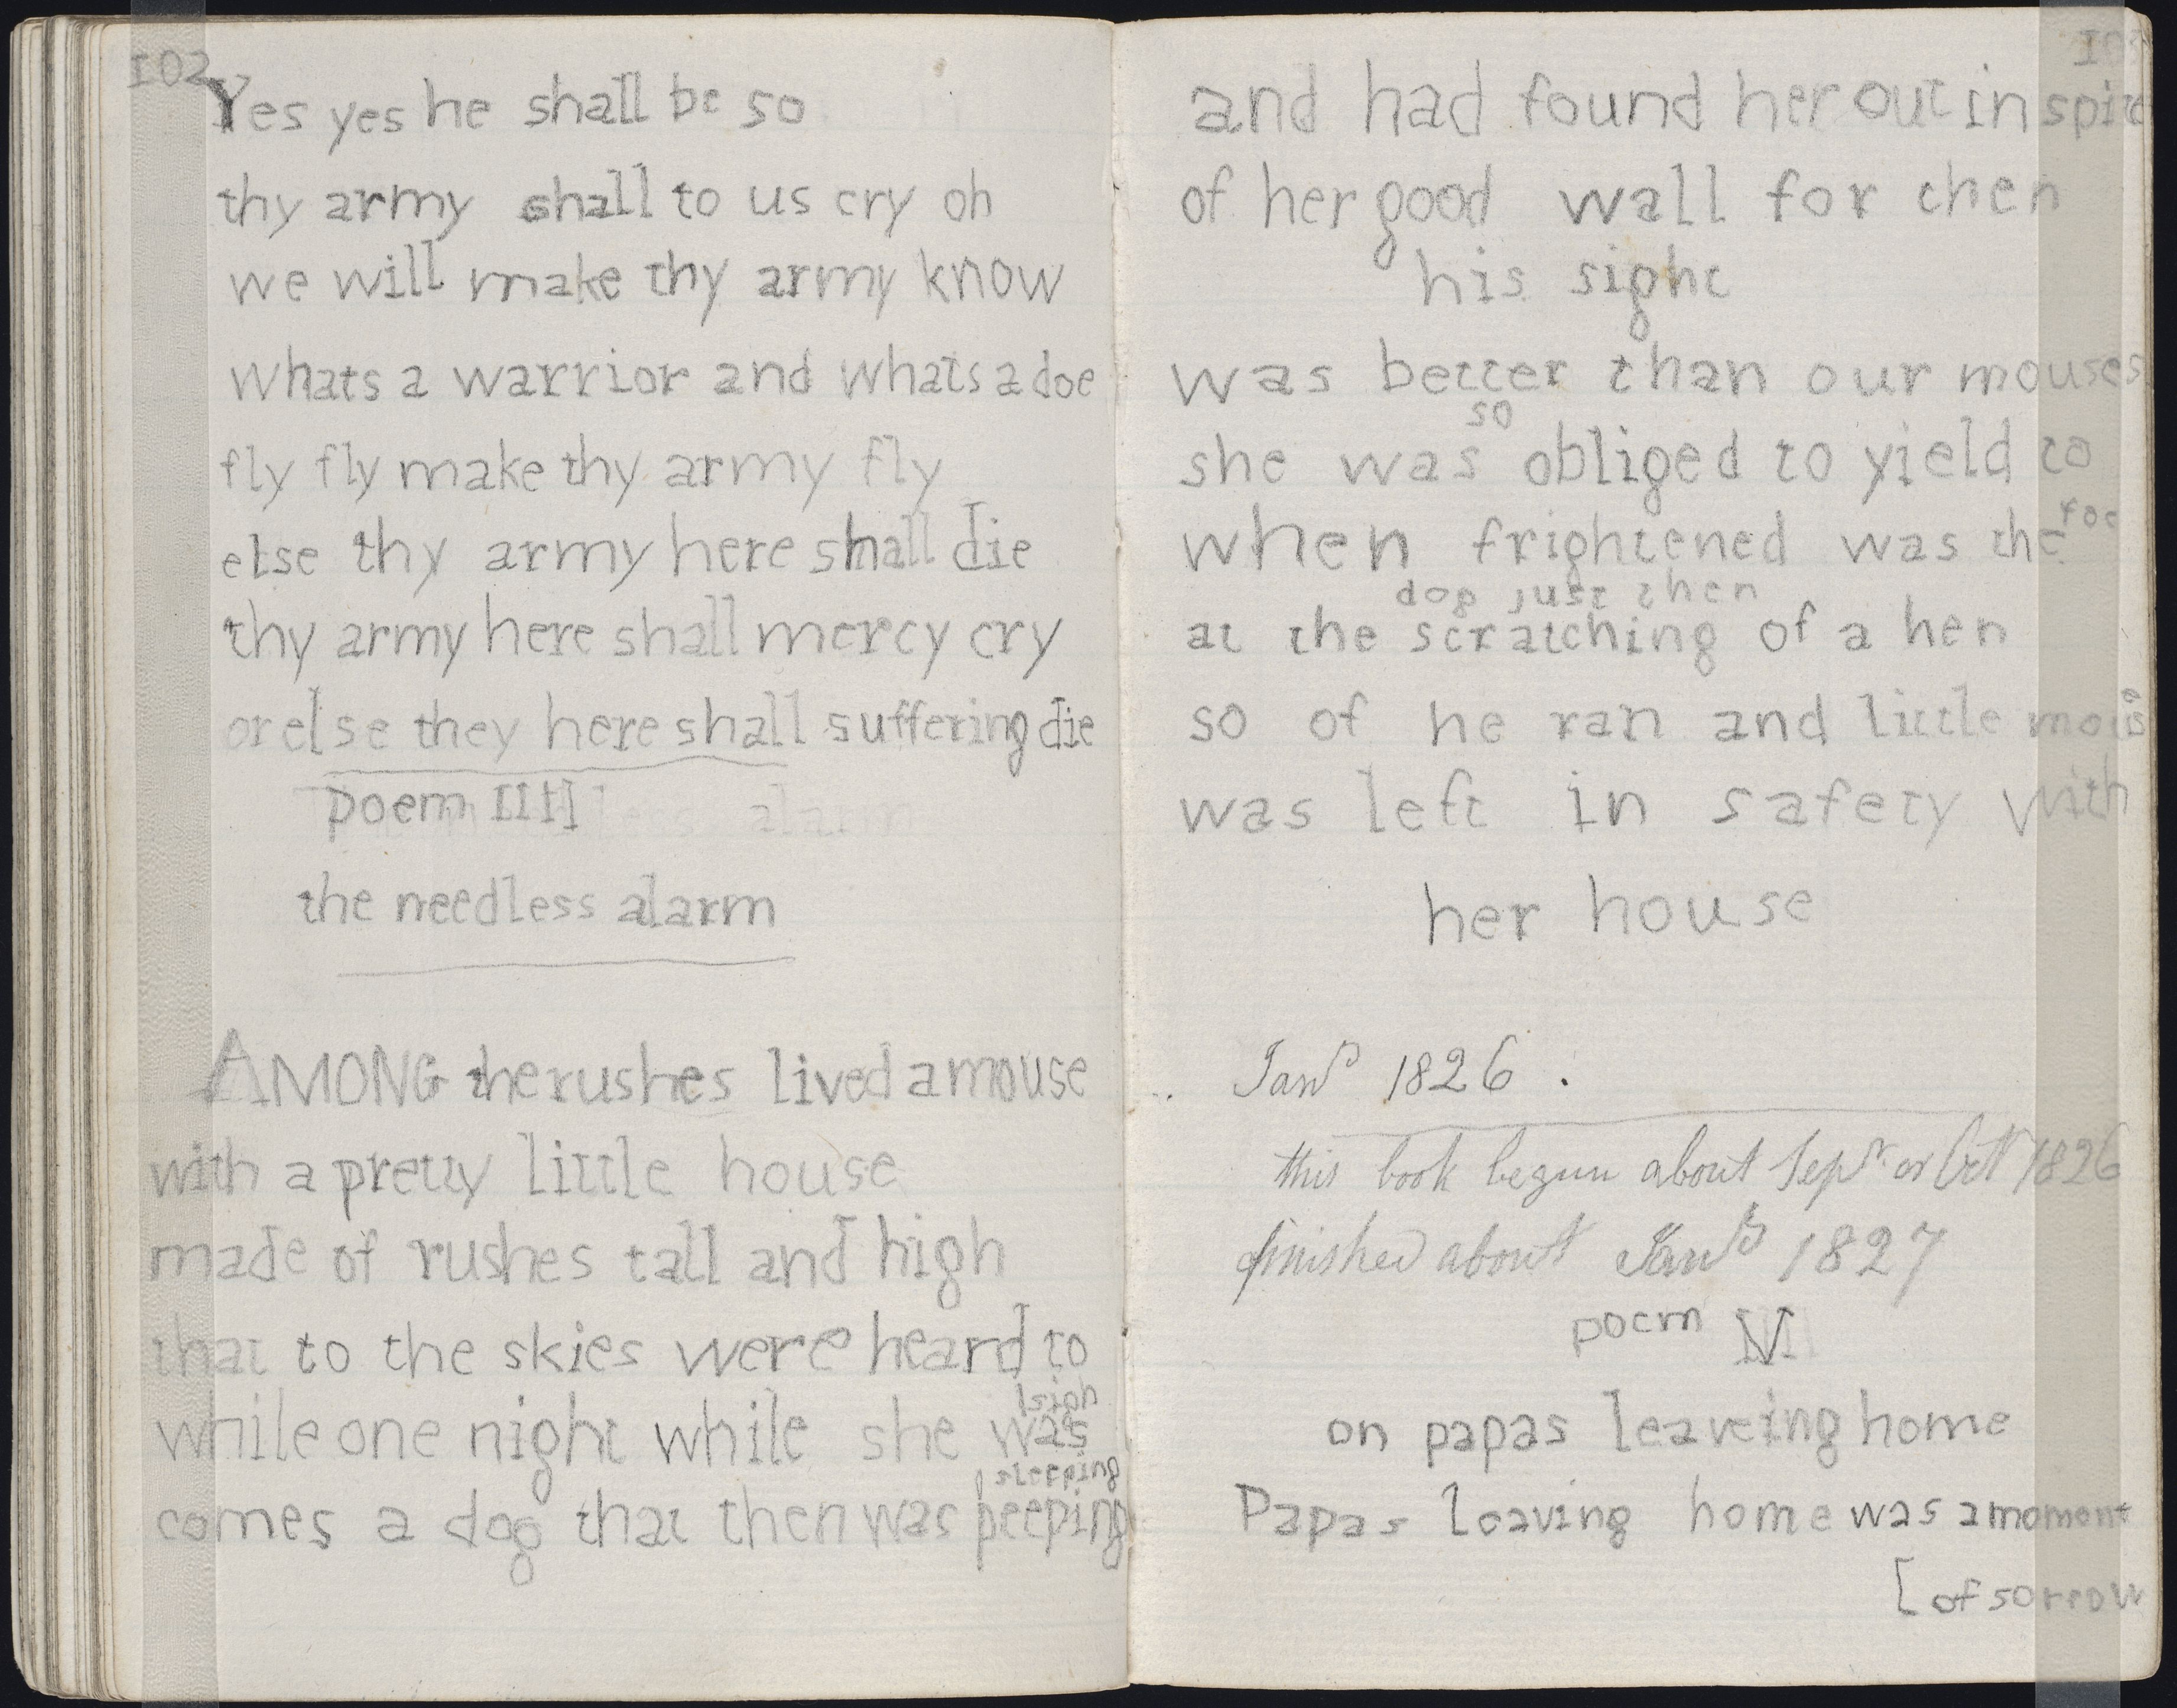 102
Yes yes he shall be so
thy army shall to us cry oh
we will make thy army know
whats a warrior and whats a doe
fly fly make thy army fly
else thy army here shall die
thy army here shall mercy cry
or else they here shall suffering die
poem IIII
the needless alarm
AMONG the rushes lived a mouse
with a pretty little house
made of rushes tall and high
that to the skies were heard to
[sigh
while one night while she was
[sleeping
comes a dog that then was peeping
and had found her out in spite
of her good wall for then
his sight
was better than our mouses
so
she was obliged to yield to
foe
when frightened was the
dog just then
at the scratching of a hen
so of he ran and little mouse
was left in safety with
her house
Jany 1826.
this book begun about Sepr or Octr 1826
finished about Jany 1827
poem V
on papas leaveing home
Papas leaving home was a moment
[of sorrow